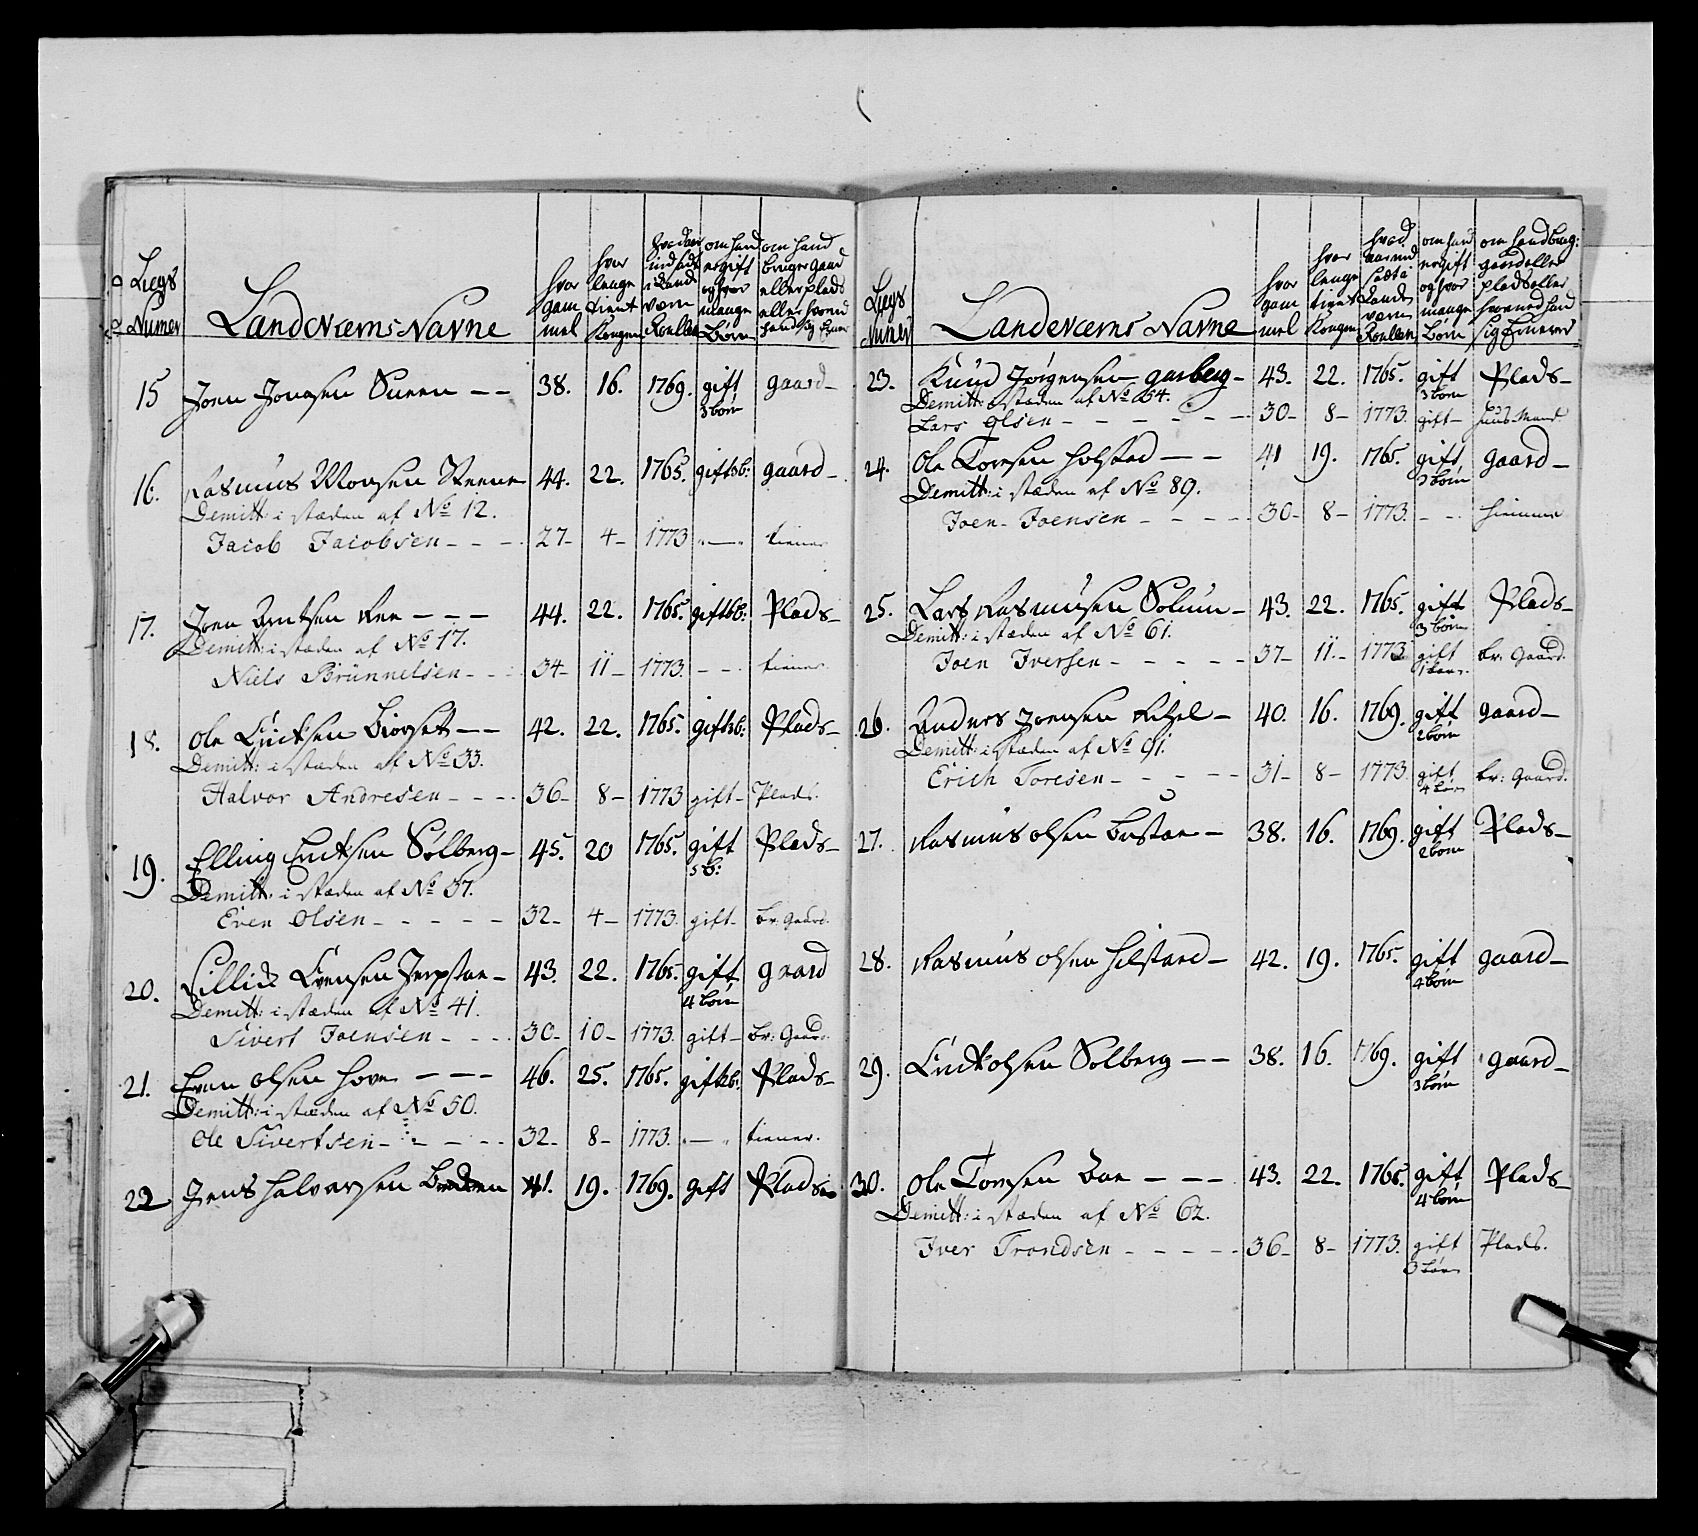 Legs Numer
LandVærns Navne
hvor gam mel
hvor lenge tient Kongen
om hand er gift og hvor mange Børn
15 Joen Jonsen 38. 16. 1769. gift 3 børn gaard
16. Rasmus Monsen 44. 22. 1765. gift b: gaard
Demitt: i stæden af No 12.
Jacob Jacobsen 27 4 1773 tiener
17. Joen 44. 22. 1765. gift b: Plads
Demitt: i stæden af No 17.
Niels Brünnelsen 34 11 1773 tiener
18. Ole Erichsen 42. 22. 1765. gift b: Plads
Demitt: i stæden af No 33.
Halvor Andresen 36 8 1773 gift Plads.
19. Elling Erichsen Solberg 45. 20 1765. gift 5 b: Plads
Demitt: i stæden af No 37.
Even Olsen 32 4 1773. gift br: Gaard.
20. Evensen 43. 22. 1765. gift 4 børn gaard
Demitt: i stæden af No 41.
Sivert Joensen 30 10 1773. gift br: Gaard.
21. Even Olsen Hove 46. 25. 1765. gift b: Plads
Demitt: i stæden af No 50.
Ole Sivertsen 32 8 1773. tiener.
22 Jens Halvorsen 41. 19. 1769. gift Plads
Legs Numer
Landeværns Navne
hvor gam mel
hvor lenge tient Kongen
om hand er gift og hvor mange Børn
23. Knud Jørgensen garberg 43. 22. 1765. gift 3 børn Plads
Demitt: i stæden af No 54.
Lars Olsen 30 8 1773. gift Huus-Mand
24. Ole Tomsen Holstad 41 19. 1765. gift 3 børn gaard
Demitt: i stæden af No 89.
Joen Joensen 30 8 1773. hiemme
25. Lars Rasmusen Solum 43. 22. 1765. gift 3 børn Plads
Demitt: i stæden af No 61.
Joen Iversen 37 11 1773 gift 1 barn br: Gaard.
26. Anders Joensen 40. 16. 1769. gift 2 børn gaard
Demitt: i stæden af No 91.
Erich Toresen 31 8 1773. gift 4 børn br: Gaard.
27. Rasmus Olsen 38. 16. 1769. gift 2 børn Plads
28. Rasmus Olsen 42. 19. 1765. gift 4 børn gaard
29. Erich Olsen Solberg 38. 16. 1769. gift 3 børn gaard
30. Ole Tomsen 43. 22. 1765. gift 4 børn Plads
Demitt: i stæden af No 62.
Iver Trondsen 36 8 1773. gift 3 børn Plads.